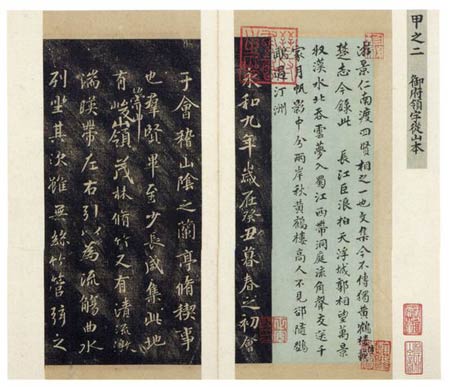 甲之二 御府領字從山本
游景仁南渡四賢相之一也文集今不傳獨黃鶴樓
楚志今錄此 長江巨浪拍天浮城郭相望萬景
收漢水北吞雲夢入蜀江西帶洞庭流角聲交送千
家月帆影中分兩岸秋黃鶴樓高人不見卻隨鸚
鵡過汀洲
永和九年歲在癸丑暮春之初會
于會稽山陰之蘭亭脩稧事
也羣賢畢至少長咸集此地
有崇山峻領茂林脩竹又有清流激
湍暎帶左右引以為流觴曲水
列坐其次雖無絲竹管弦之